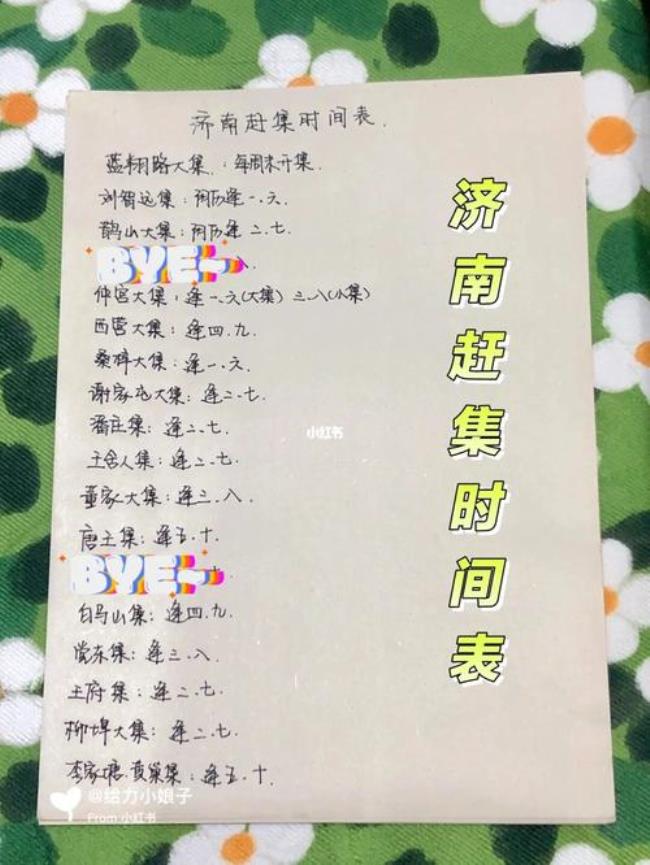 济南赶集时间表.
蓝翔路大集:每周末开集.
刘智远集:阴历逢一.六.
鹊山大集:阴历逢二.七.
BYE~ 八.
仲宫大集:逢一.六(大集) 三.八(小集)
西营大集:逢四.九.
桑梓大集:逢一.六.
谢家屯大集:逢二.七.
潘庄集:逢二.七.
王舍人集:逢二.七.
董家大集:逢三.八.
唐王集:逢五.十.
BYE~
白马山集:逢四.九.
党东集:逢三.八.
王府集:逢二.七.
柳埠大集:逢二.七.
李家塘.夏巢集:逢五.十.
济南赶集时间表
小红书
@给力小娘子
From 小红书